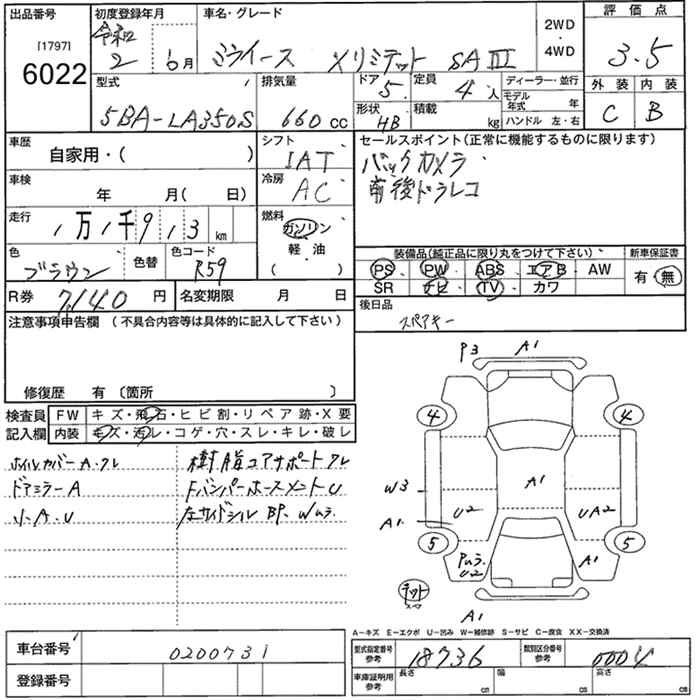 出品番号
[1797]
6022
初度登録年月
令和
2 6月
車名・グレード
ミライース メリミテット SAⅢ
2WD
・
4WD
評価点
3.5
型式
5BA-LA350S
排気量
660cc
ドア
5
定員
4人
形状
HB
積載
kg
ディーラー・並行
モデル年式 年
ハンドル 左・右
外装 内装
C B
車歴
自家用・( )
シフト
IAT
車検
年 月( 日)
冷房
AC
走行
1万1千913km
燃料
ガソリン
軽・油
( )
色
ブラウン
色替
色コード
R59
R券 7140円
名変期限 月 日
セールスポイント(正常に機能するものに限ります)
バックカメラ
前後ドラレコ
装備品(純正品に限り丸をつけて下さい) 新車保証書
PS PW ABS エアB AW 有・無
SR ナビ TV カワ
後日品
スペアキー
注意事項申告欄(不具合内容等は具体的に記入して下さい)
修復歴 有〔箇所 〕
検査員記入欄
FW キズ・飛石・ヒビ割・リペア跡・X要
内装 キズ・汚レ・コゲ・穴・スレ・キレ・破レ
ホイルカバーA.ワレ 樹脂コアサポートワレ
ドアミラーA FバンパーホースメントU
小A.U 左サイドシル BP.Wムラ
P3 A1
4 4
W3 A1
A1 U2 UA2
5 5
Pムラ
U2
A1
テット
スペア
A1
A-キズ E-エクボ U-凹み W-補修跡 S-サビ C-腐食 XX-交換済
車台番号 0200731
登録番号
型式指定番号 参考 18736
類別区分番号 参考 0004
車庫証明用 参考
長さ cm 幅 cm 高さ cm